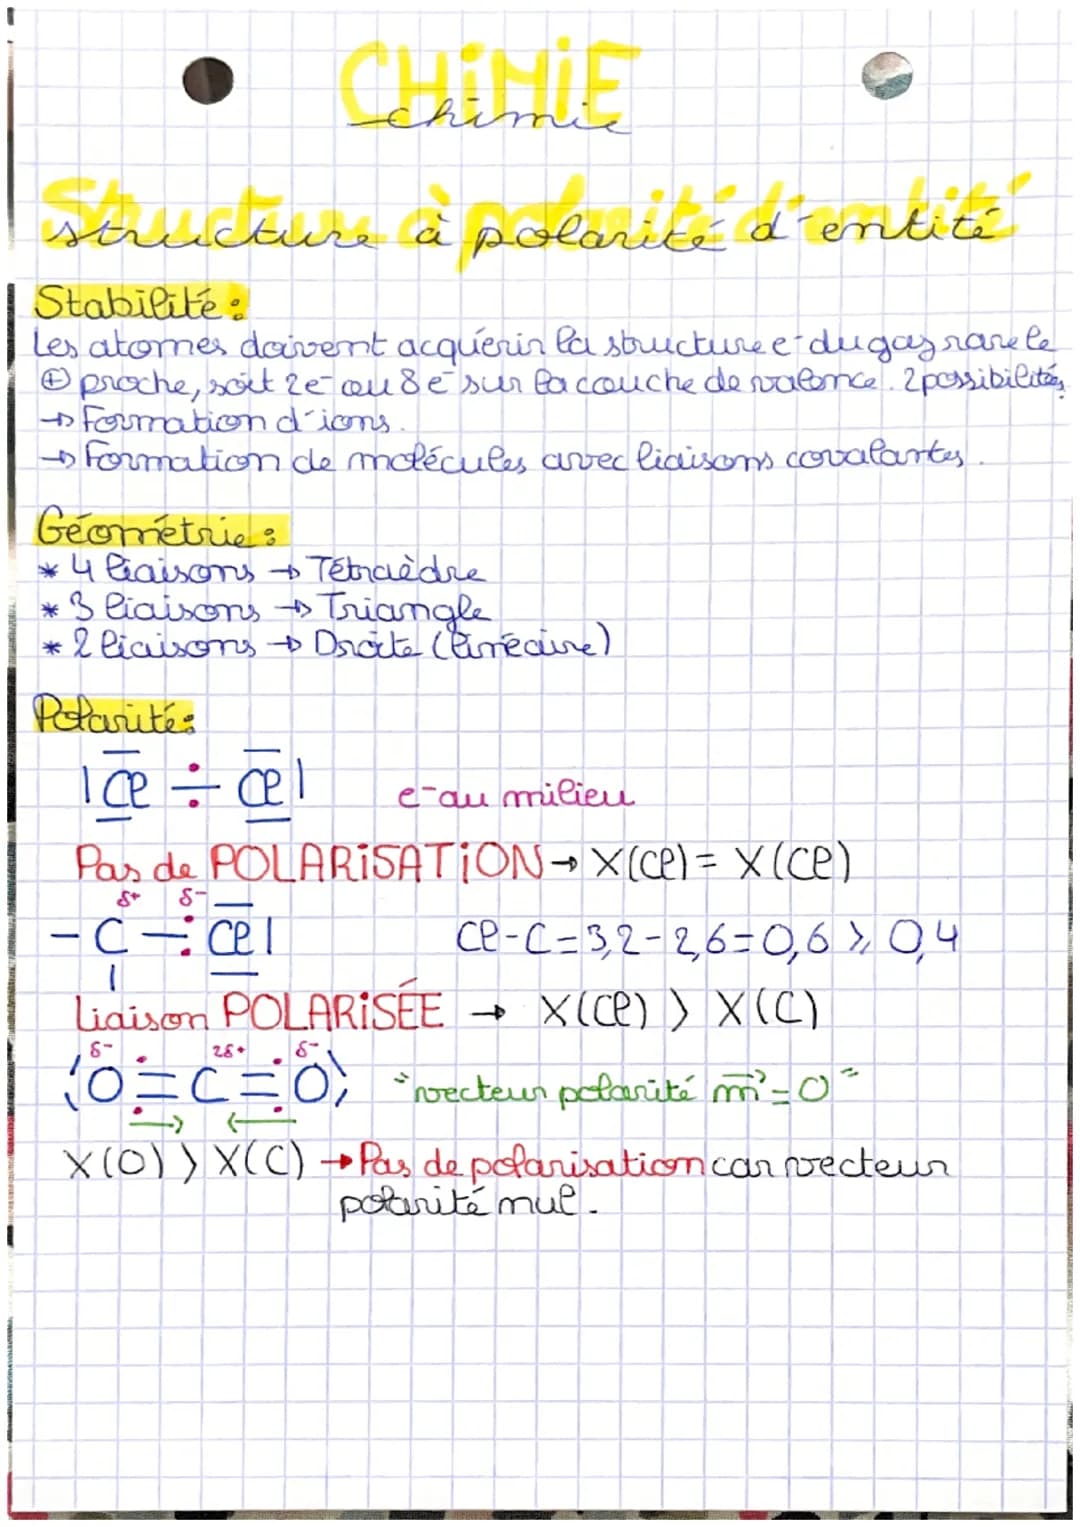 CHIMIE
chimie
Structure à polarité d'entité
structure à polarité d'entité
Stabilité :
Les atomes doivent acquérir la structure e- du gaz rare le
⊕ proche, soit 2e- ou 8e- sur la couche de valence. 2 possibilités
→ Formation d'ions.
→ Formation de molécules avec liaisons covalantes.
Géométrie :
* 4 liaisons → Tétraèdre
* 3 liaisons → Triangle
* 2 liaisons → Droite (linéaire)
Polarité :
|Cl — Cl| e- au milieu
Pas de POLARISATION → X(Cl) = X(Cl)
δ+ δ-
- C — Cl| Cl-C = 3,2 - 2,6 = 0,6 ⩾ 0,4
Liaison POLARISÉE → X(Cl) > X(C)
δ- 2δ+ δ-
O = C = O "vecteur polarité m⃗ = 0"
X(O) > X(C) → Pas de polarisation car vecteur
polarité nul.